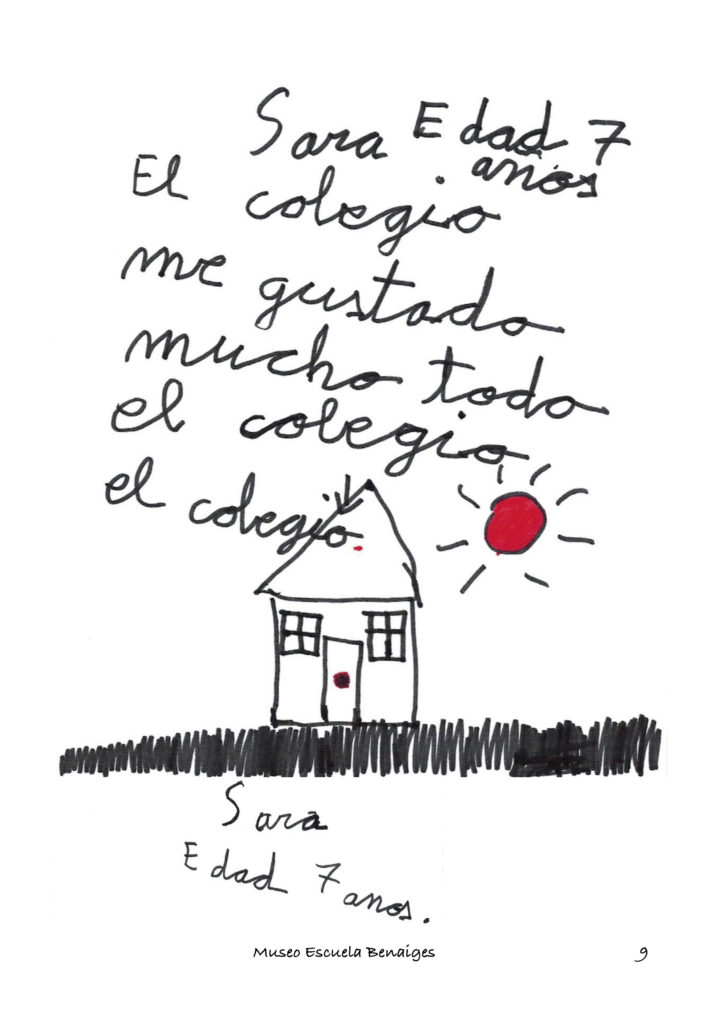 Sara Edad 7
años
El colegio
me gustado
mucho todo
el colegio
el colegio
Sara
Edad 7 anos.
Museo Escuela Benaiges 9